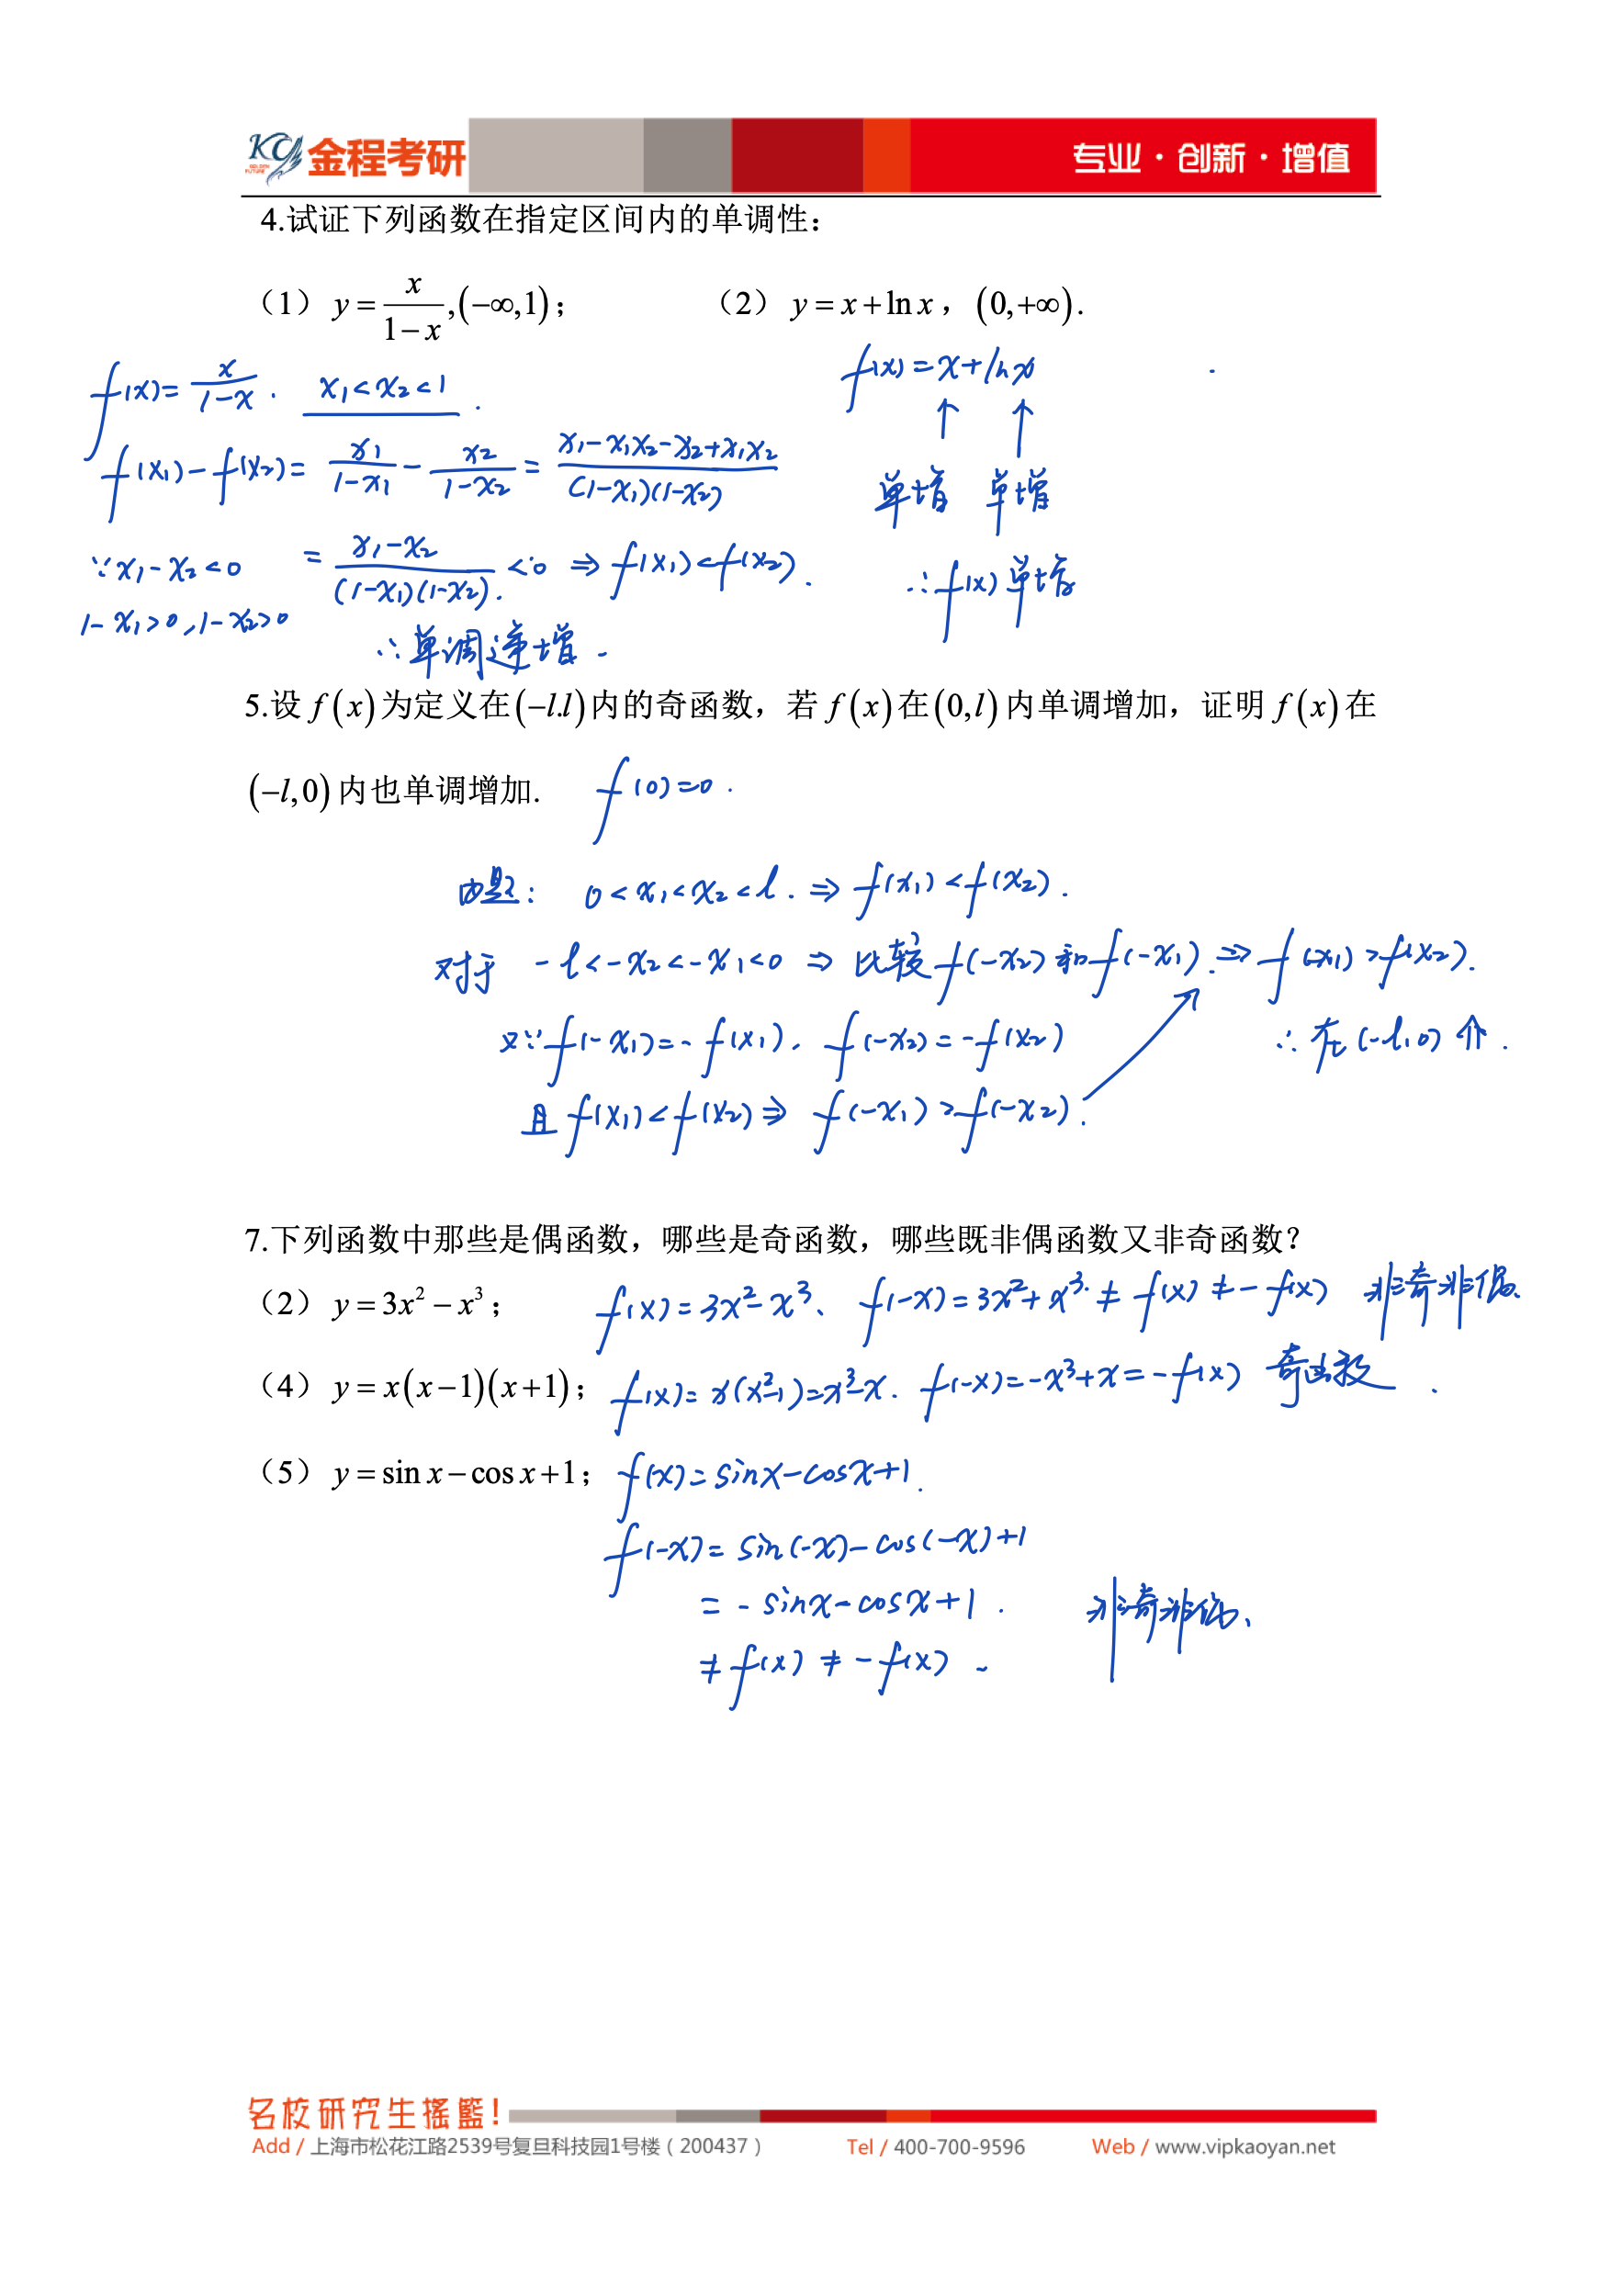 KC GOLDEN FUTURE 金程考研 专业·创新·增值
4.试证下列函数在指定区间内的单调性：
（1） y = x/(1−x) ,(−∞,1)； （2） y = x + ln x ， (0,+∞).
f(x) = x/(1−x) . x₁<x₂<1 . f(x) = x+lnx
f(x₁)−f(x₂)= x₁/(1−x₁) − x₂/(1−x₂) = (x₁−x₁x₂−x₂+x₁x₂)/((1−x₁)(1−x₂)) 单增 单增
∵x₁−x₂<0 = (x₁−x₂)/((1−x₁)(1−x₂)) <0 ⇒ f(x₁)<f(x₂). ∴f(x)单增
1−x₁>0,1−x₂>0
∴单调递增.
5.设 f(x) 为定义在 (−l.l) 内的奇函数，若 f(x) 在 (0,l) 内单调增加，证明 f(x) 在
(−l,0) 内也单调增加. f(0)=0.
由题: 0<x₁<x₂<l. ⇒ f(x₁)<f(x₂).
对于 −l<−x₂<−x₁<0 ⇒ 比较 f(−x₂) 和 f(−x₁). ⇒ f(−x₁)>f(x₂).
又∵f(−x₁)=−f(x₁), f(−x₂)=−f(x₂) ∴在(−l,0)个.
且 f(x₁)<f(x₂) ⇒ f(−x₁)>f(−x₂).
7.下列函数中那些是偶函数，哪些是奇函数，哪些既非偶函数又非奇函数？
（2） y = 3x² − x³； f(x)=3x²−x³、 f(−x)=3x²+x³≠f(x)≠−f(x) 非奇非偶、
（4） y = x(x−1)(x+1)； f(x)=x(x²−1)=x³−x. f(−x)=−x³+x=−f(x) 奇函数.
（5） y = sin x − cos x +1； f(x)=sinx−cosx+1.
f(−x)=sin(−x)−cos(−x)+1
=−sinx−cosx+1. 非奇非偶、
≠f(x)≠−f(x).
名校研究生摇篮！
Add / 上海市松花江路2539号复旦科技园1号楼（200437） Tel / 400-700-9596 Web / www.vipkaoyan.net